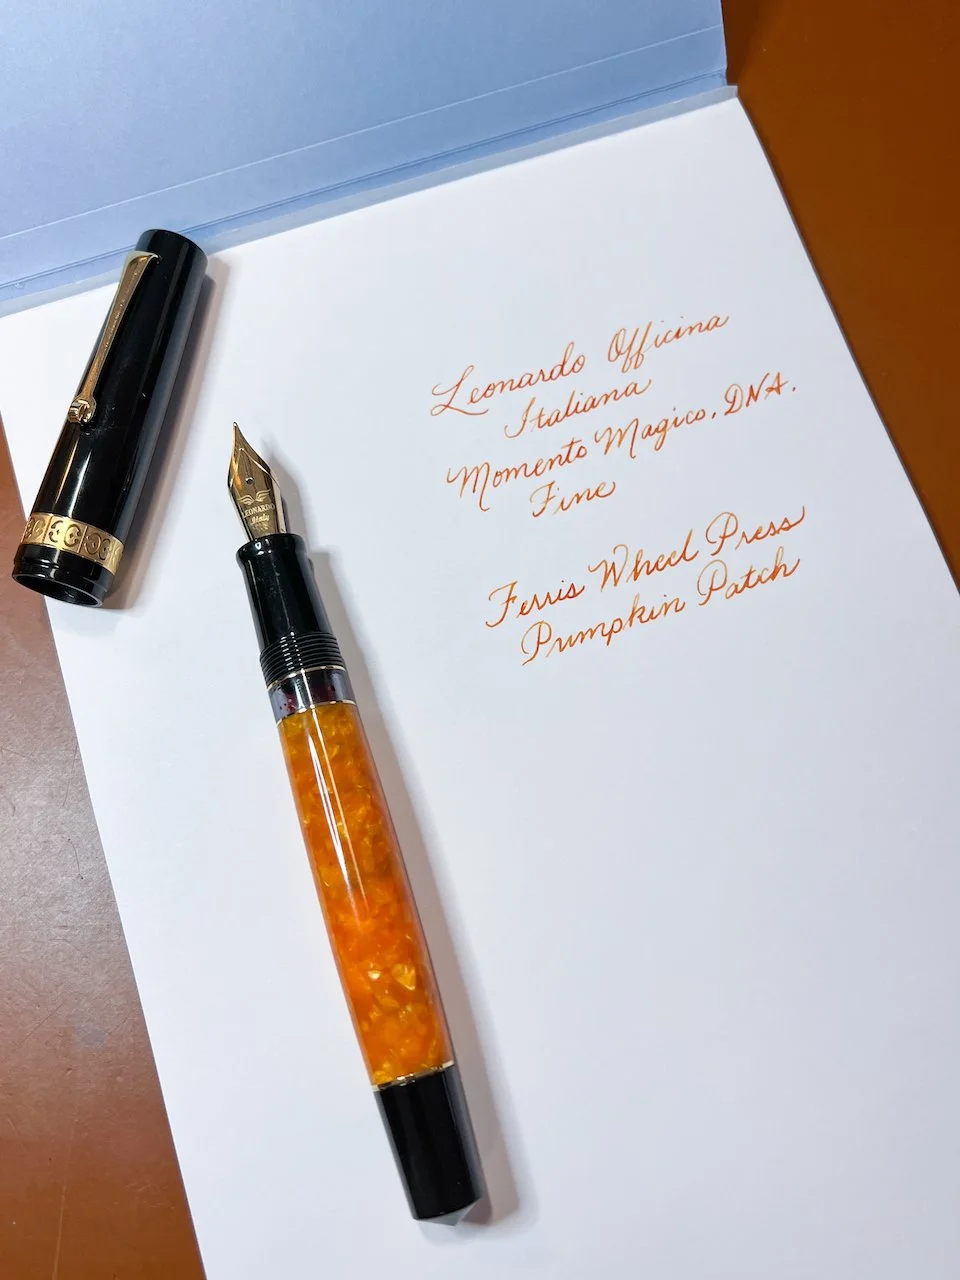 Leonardo Officina
Italiana
Momento Magico, DNA.
Fine
Ferris Wheel Press
Pumpkin Patch
LEONARDO
Italy